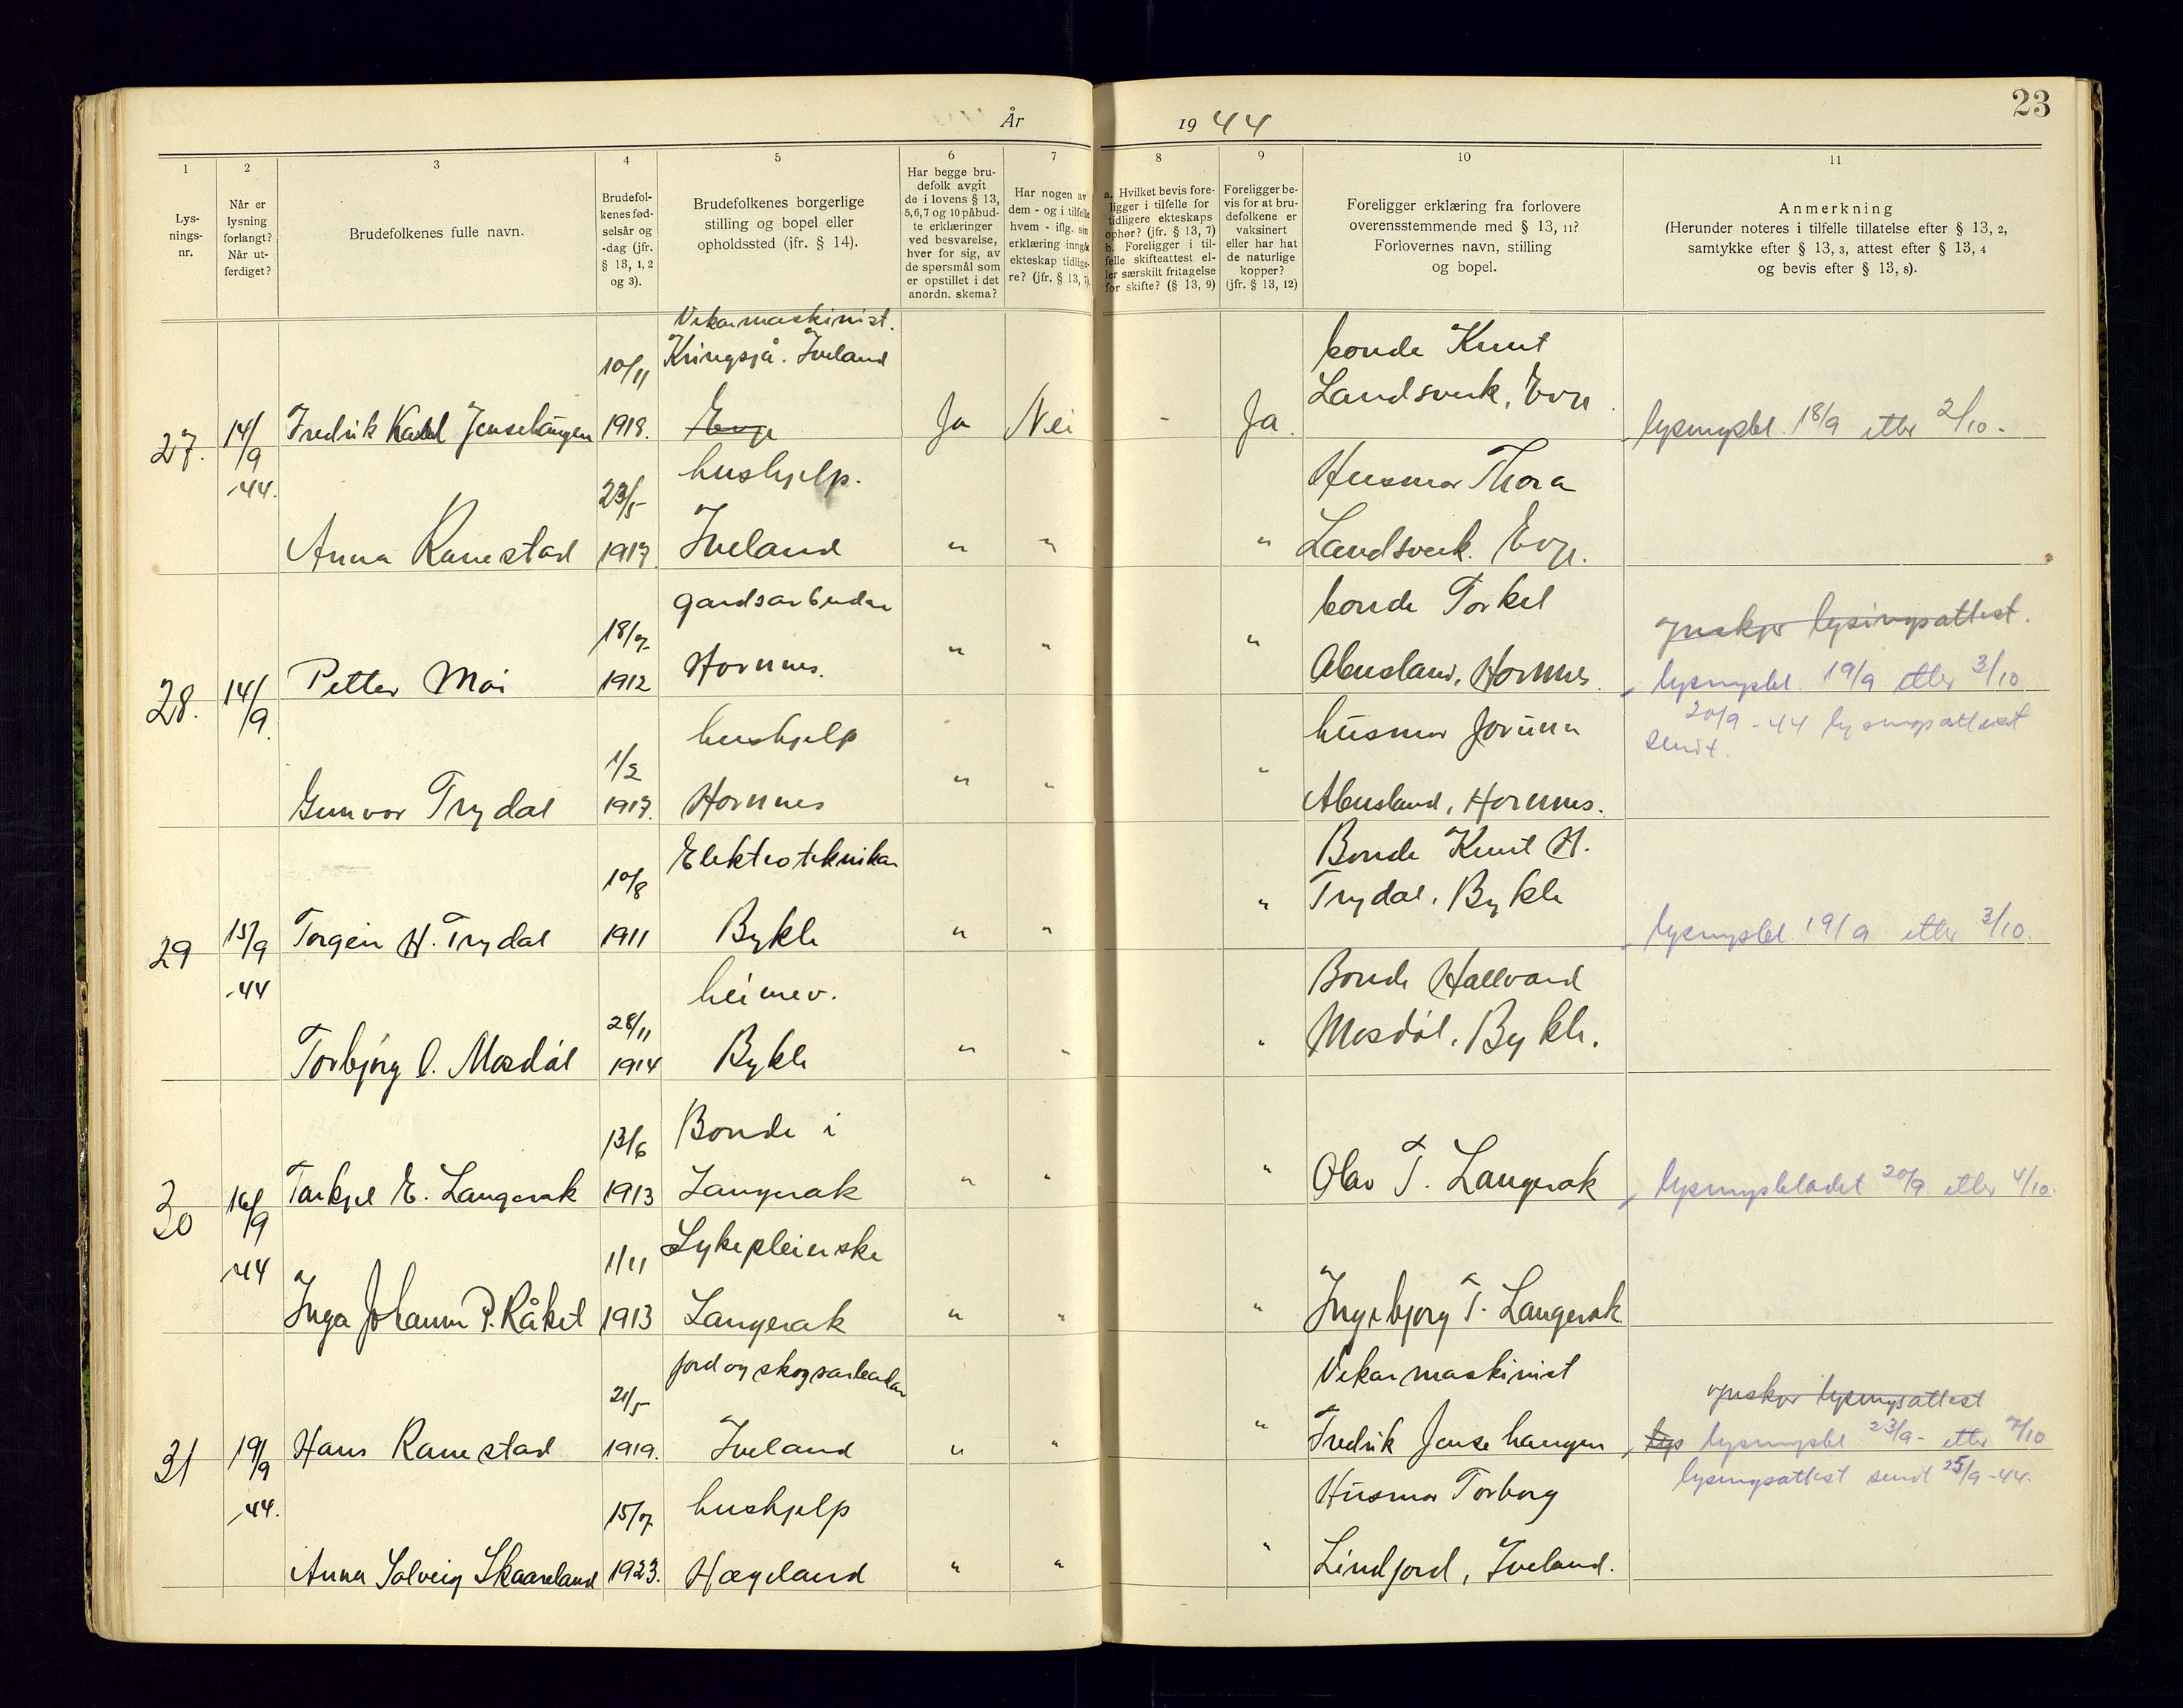 23
År 1944
1 2 3 4 5 6 7 8 9 10 11
Lys-
nings-
nr.
Når er
lysning
forlangt?
Når ut-
ferdiget?
Brudefolkenes fulle navn.
Brudefol-
kenes fød-
selsår og
-dag (jfr.
§ 13, 1, 2
og 3).
Brudefolkenes borgerlige
stilling og bopel eller
opholdssted (ifr. § 14).
Har begge bru-
defolk avgit
de i lovens § 13,
5,6,7 og 10 påbud-
te erklæringer
ved besvarelse,
hver for sig, av
de spørsmål som
er opstillet i det
anordn. skema?
Har nogen av
dem - og i tilfelle
hvem - iflg. sin
erklæring inngåt
ekteskap tidlige-
re? (jfr. § 13, 7).
a. Hvilket bevis fore-
ligger i tilfelle for
tidligere ekteskaps
ophør? (jfr. § 13, 7)
b. Foreligger i til-
felle skifteattest el-
ler særskilt fritagelse
for skifte? (§ 13, 9)
Foreligger be-
vis for at bru-
defolkene er
vaksinert
eller har hat
de naturlige
kopper?
(jfr. § 13, 12)
Foreligger erklæring fra forlovere
overensstemmende med § 13, 11?
Forlovernes navn, stilling
og bopel.
Anmerkning
(Herunder noteres i tilfelle tillatelse efter § 13, 2,
samtykke efter § 13, 3, attest efter § 13, 4
og bevis efter § 13, 8).
Vikarmaskinist.
10/11 Kringsjå. Iveland bonde Knut
Landsverk, Evje.
27. 14/9 Fredrik Karl Jensehaugen 1918. Evje Ja Nei - Ja. lysingsbl. 18/9 etter 2/10.
-44. 23/5 hushjelp. Husmor Thora
Anna Ranestad 1917. Iveland " " " Landsverk. Evje.
18/7 gardsarbeidar bonde Torkel ynskjer lysingsattest.
28. 14/9 Petter Moi 1912 Hornnes. " " " Abusland, Hornnes. lysingsbl. 19/9 etter 3/10
1/2 hushjelp husmor Jorunn 20/9-44 lysingsattest
sendt.
Gunvor Trydal 1917. Hornnes " " " Abusland, Hornnes.
10/8 Elektroteknikar Bonde Knut H.
" Trydal. Bykle
29 15/9 Torgeir H. Trydal 1911 Bykle " " lysingsbl. 19/9 etter 3/10.
-44 heimev. Bonde Hallvard
28/11 " Mosdøl, Bykle.
Torbjørg O. Mosdøl 1914 Bykle " "
13/6 Bonde i
30 16/9 Tarkjel E. Langerak 1913 Langerak " " " Olav T. Langerak lysingsbladet 20/9 etter 4/10.
-44 1/11 Sykepleierske
Inga Johanne P. Råket 1913 Langerak " " " Ingebjørg T. Langerak
21/5 jord og skogsarbeidar Vikarmaskinist ynskjer lysingsattest
31 19/9 Hans Ranestad 1919. Iveland " " " Fredrik Jensehaugen lys lysingsbl 23/9- etter 7/10
-44. 15/7 hushjelp Husmor Torborg lysingsattest sendt 25/9-44.
Anna Solveig Skaareland 1923. Hægeland " " " Lindjord, Iveland.